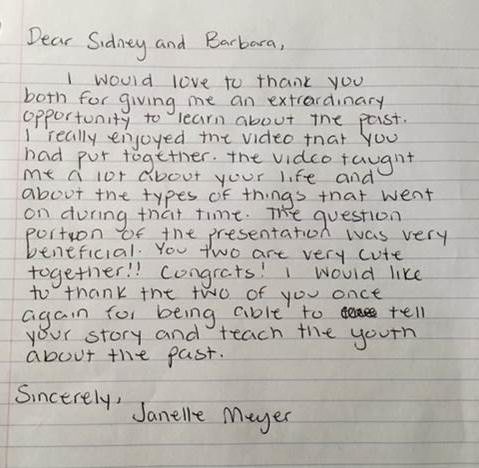 Dear Sidney and Barbara,
I would love to thank you
both for giving me an extrordinary
opportunity to learn about the past.
I really enjoyed the video that you
had put together. The video taught
me a lot about your life and
about the types of things that went
on during that time. The question
portion of the presentation was very
beneficial. You two are very cute
together!! Congrats! I would like
to thank the two of you once
again for being able to tell
your story and teach the youth
about the past.
Sincerely,
Janelle Meyer